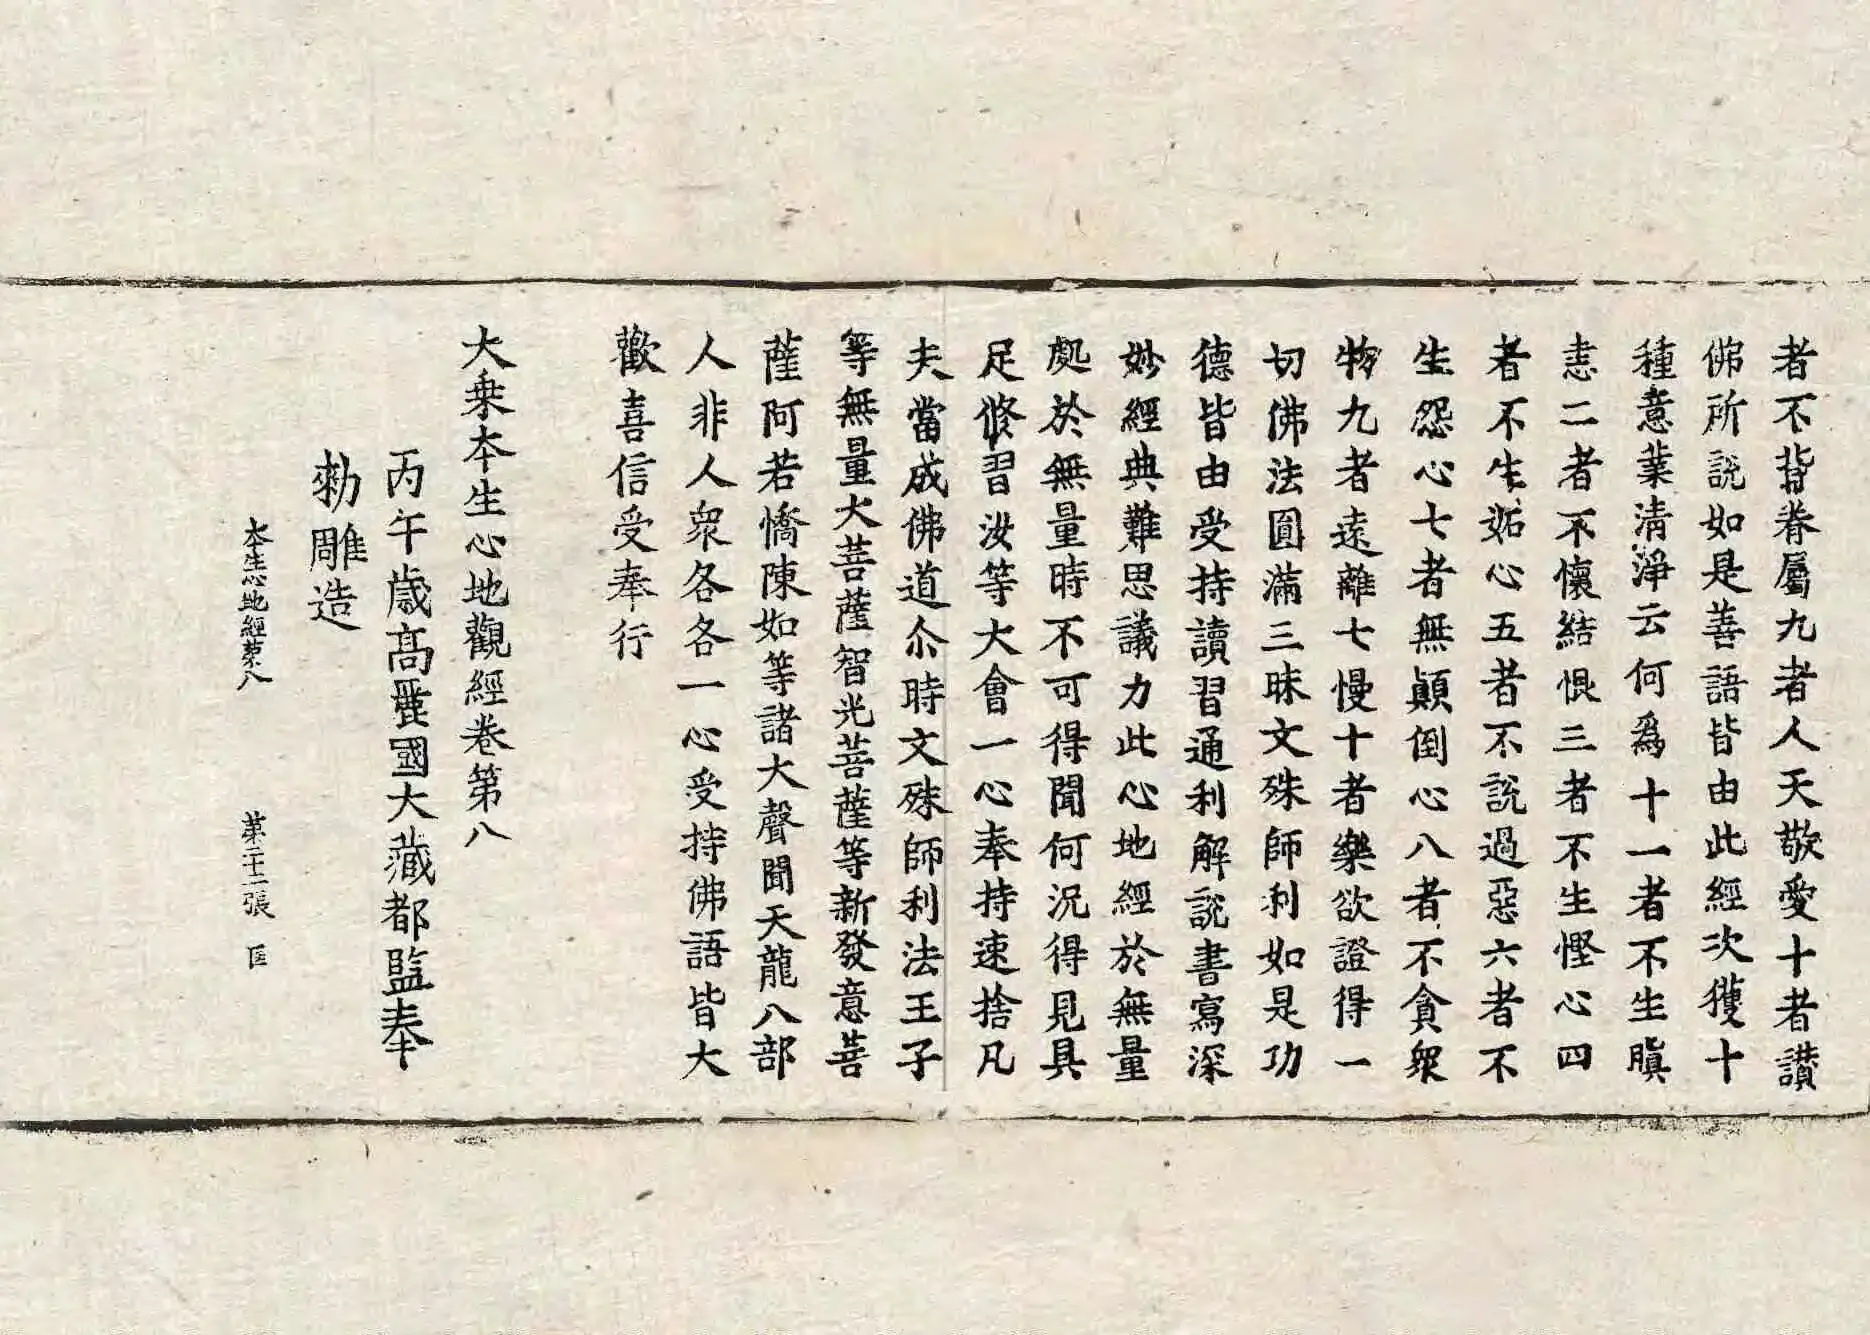 者不背眷屬九者人天敬愛十者讃
佛所說如是善語皆由此經次獲十
種意業清淨云何爲十一者不生瞋
恚二者不懷結恨三者不生慳心四
者不生妬心五者不說過惡六者不
生怨心七者無顚倒心八者不貪衆
物九者遠離七慢十者樂欲證得一
切佛法圓滿三昧文殊師利如是功
德皆由受持讀習通利解說書寫深
妙經典難思議力此心地經於無量
處於無量時不可得聞何況得見具
足修習汝等大會一心奉持速捨凡
夫當成佛道尒時文殊師利法王子
等無量大菩薩智光菩薩等新發意菩
薩阿若憍陳如等諸大聲聞天龍八部
人非人衆各各一心受持佛語皆大
歡喜信受奉行
大乘本生心地觀經卷第八
丙午歲高麗國大藏都監奉
勅雕造
本生心地經第八 第二十二張 匡